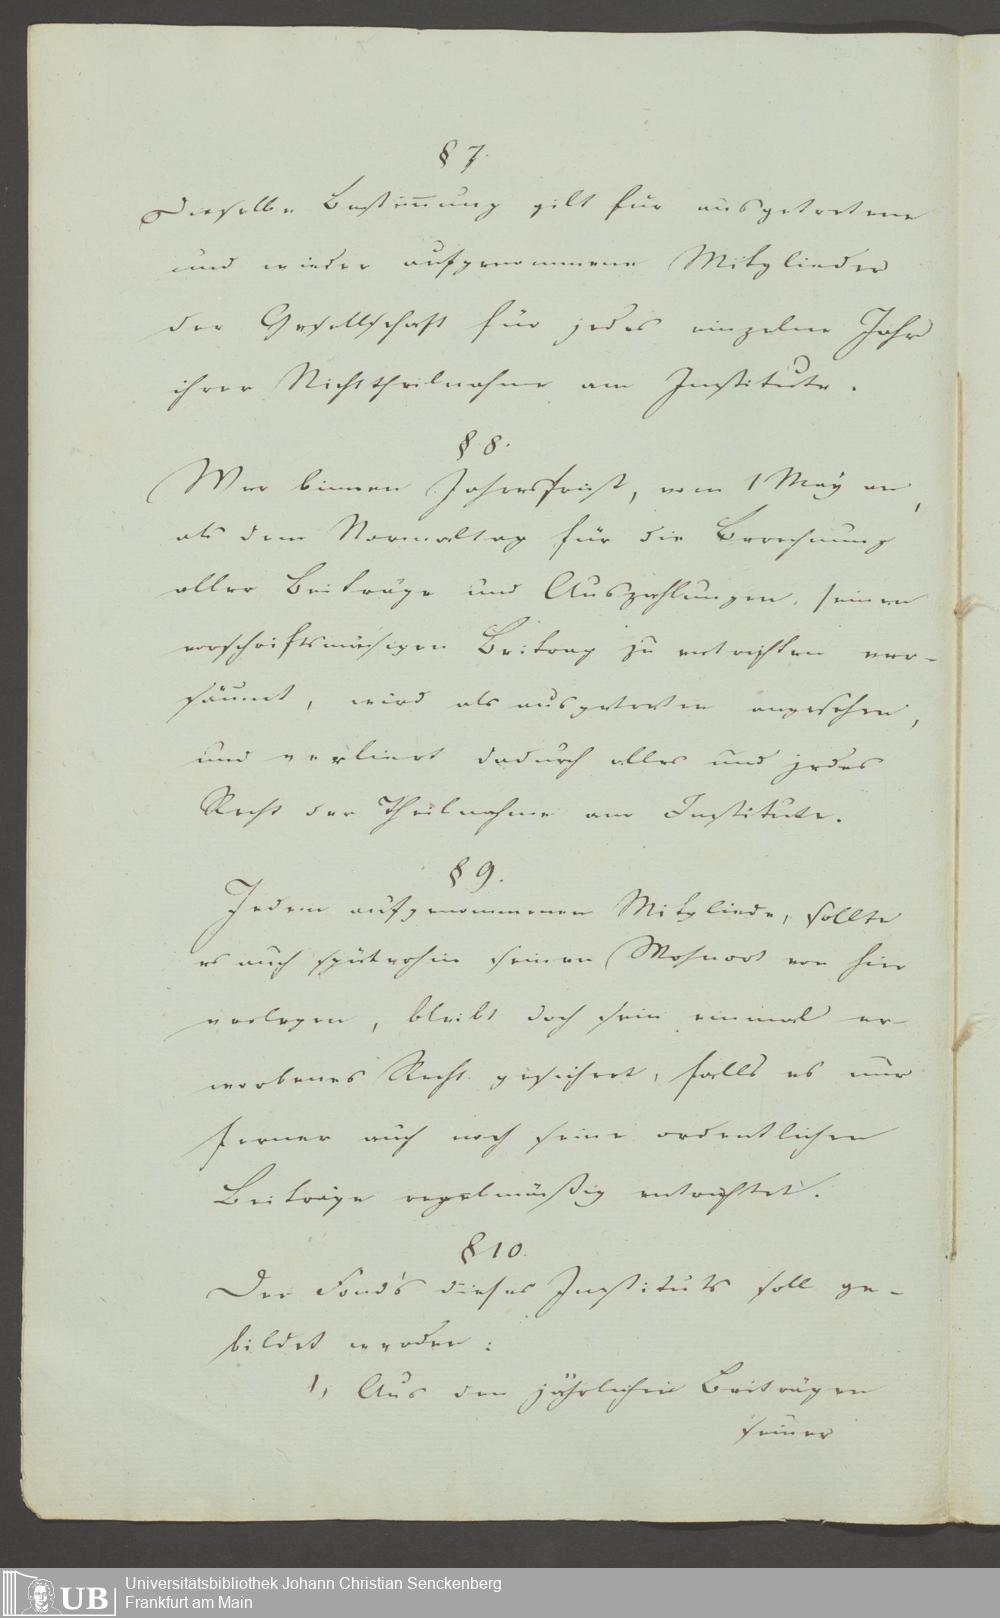 § 7.
Dieselbe Bestim̅ung gilt für ausgetretene
und wieder aufgenommene Mitglieder
der Gesellschaft für jedes einzelne Jahr
ihrer Nichttheilnahme am Institute.
§ 8.
Wer binnen Jahresfrist, vom 1 May an,
als dem Normaltag für die Berechnung
aller Beiträge und Auszahlungen, seinen
vorschriftsmäsigen Beitrag zu entrichten ver-
säumt, wird als ausgetreten angesehen,
und verliert dadurch alles und jedes
Recht der Theilnahme am Institute.
§ 9.
Jedem aufgenommenen Mitgliede, sollte
es auch späterhin seinen Wohnort von hier
verlegen, bleibt doch sein einmal er-
worbenes Recht gesichert, falls es nur
ferner auch noch seine ordentlichen
Beiträge regelmäßig entrichtet.
§ 10.
Der Fond's dieses Instituts soll ge-
bildet werden:
1, Aus den jährlichen Beiträgen
seiner
UB
Universitätsbibliothek Johann Christian Senckenberg
Frankfurt am Main